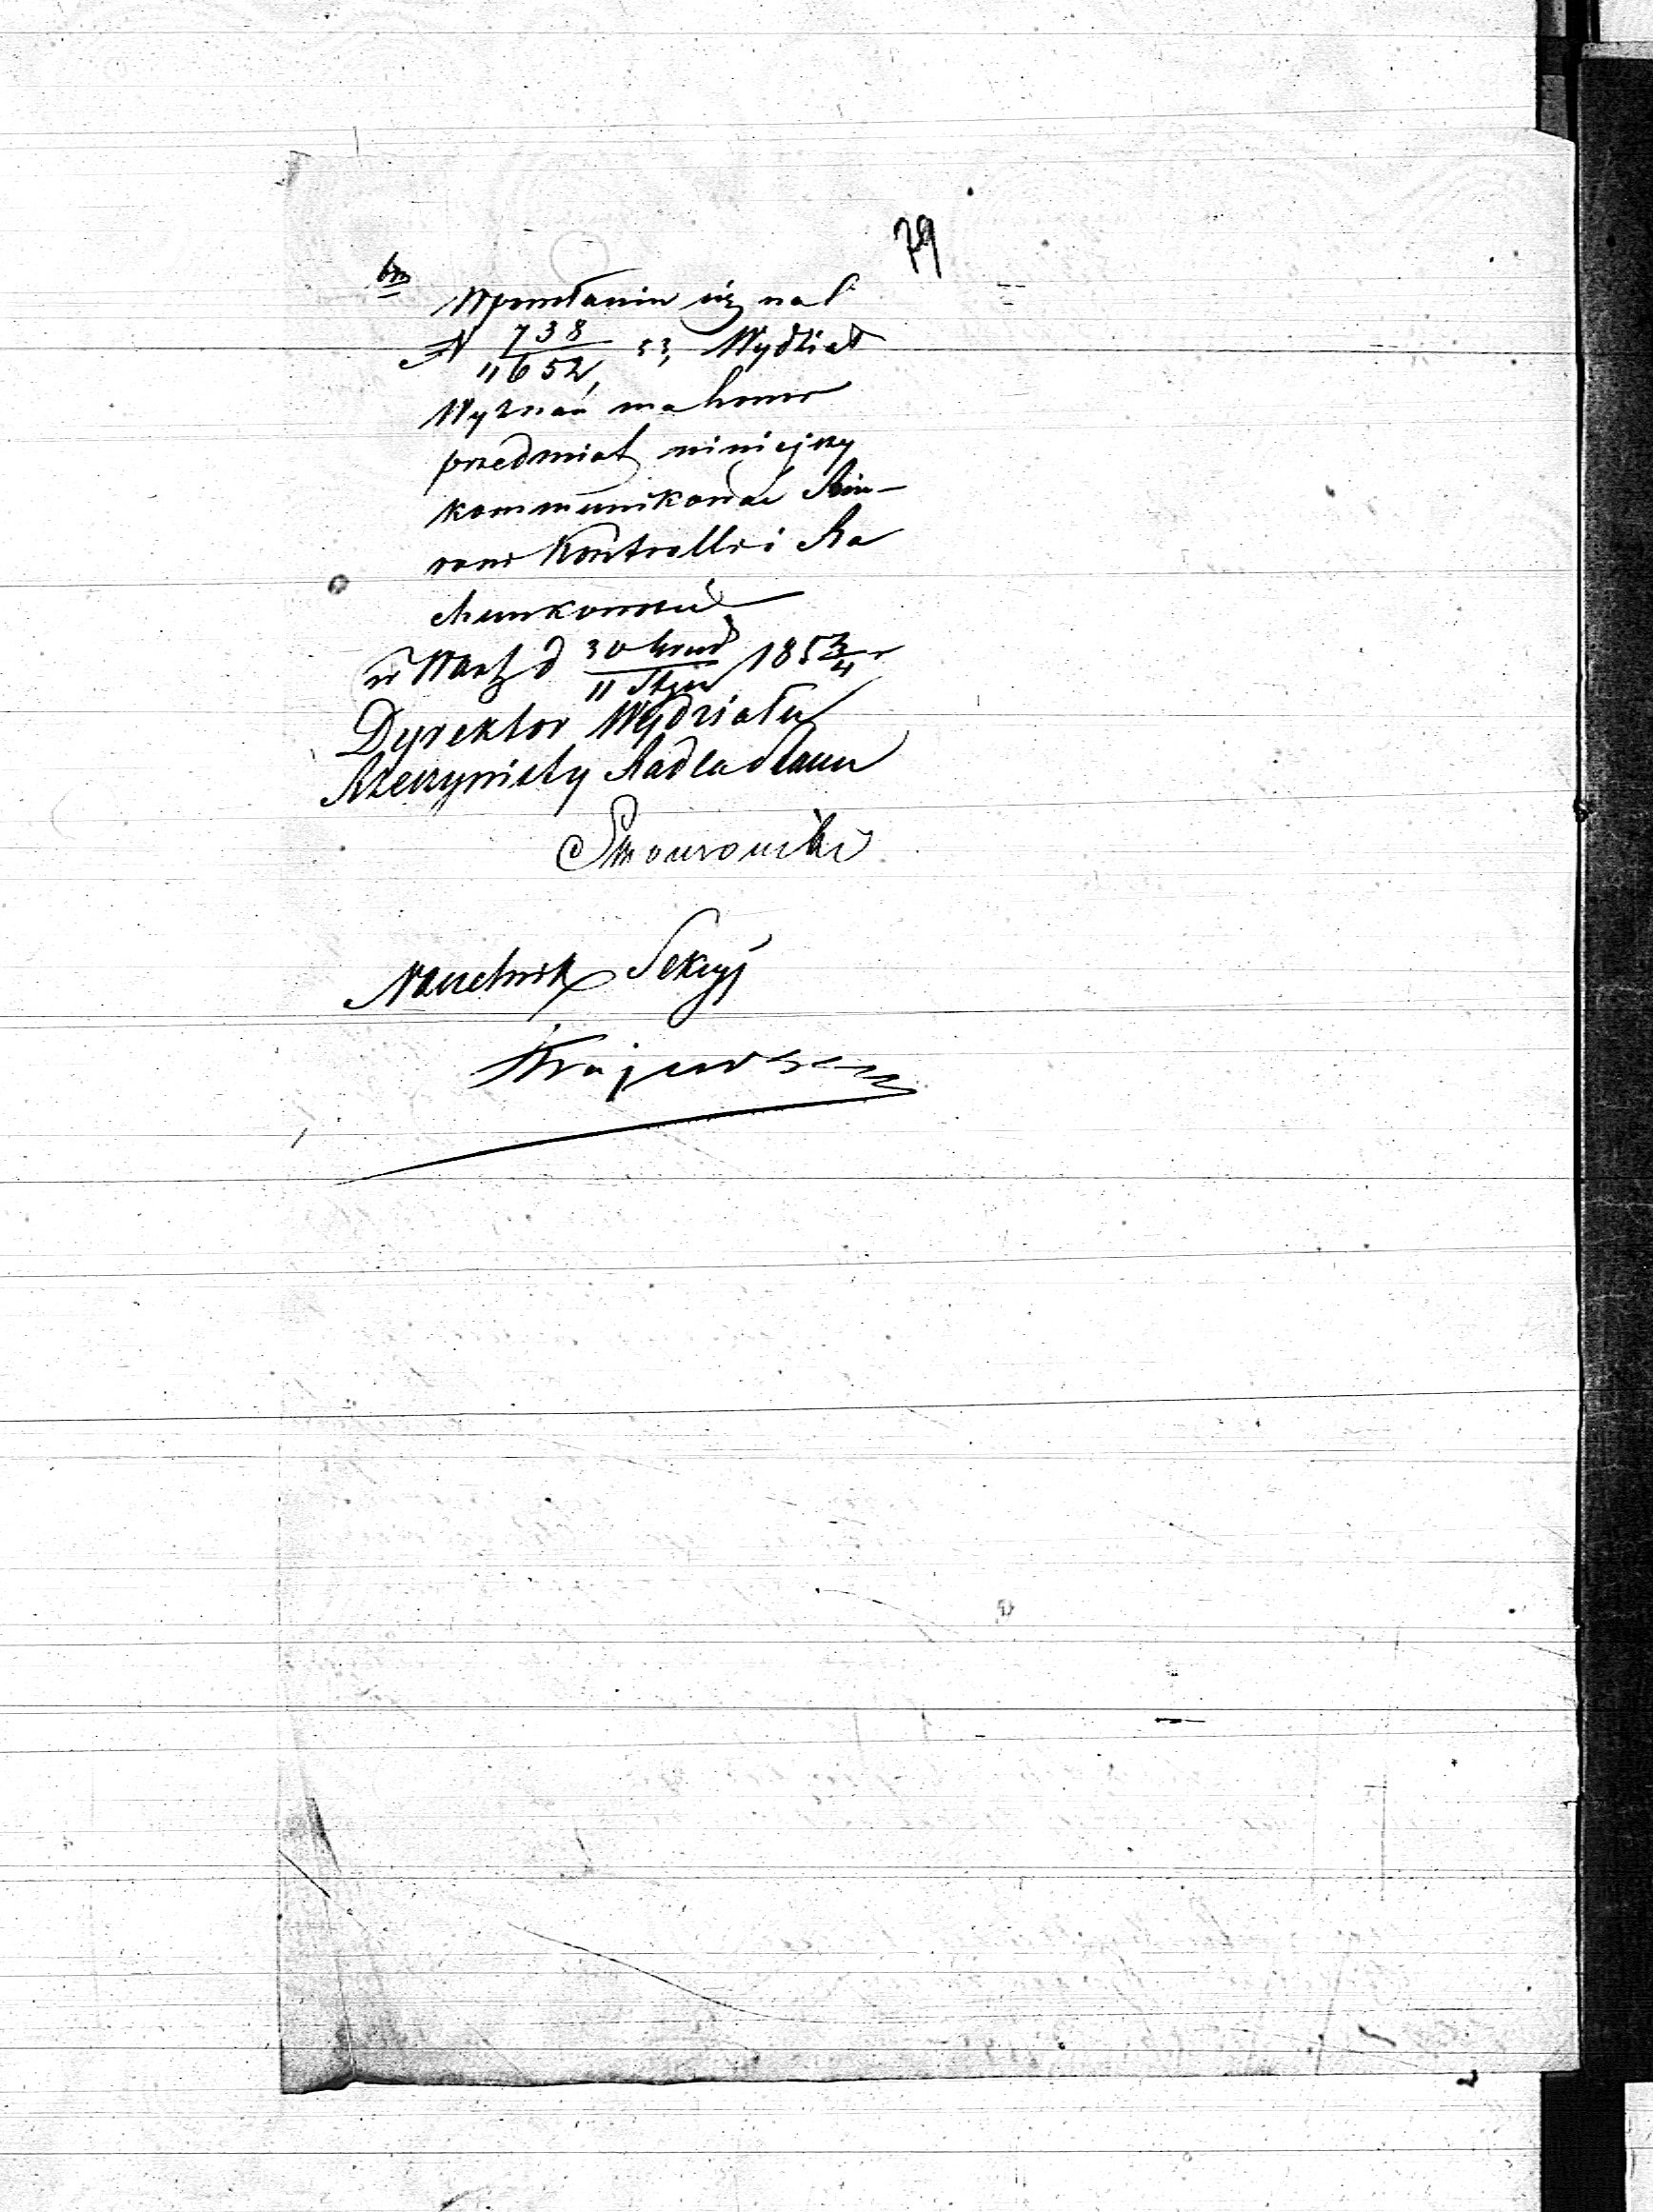 79
W powołaniu się na
N 738/11652, 53, Wydział
Wyznań ma honor
przedmiot niniejszy
kommunikować Biu-
rowi Kontrolli i Ra
chunkowości
w Warsz d 30 Grud/11 Stycz 1853/4 r
Dyrektor Wydziału
Rzeczywisty Radca Stanu
Naczelnik Sekcyi
Krajewski